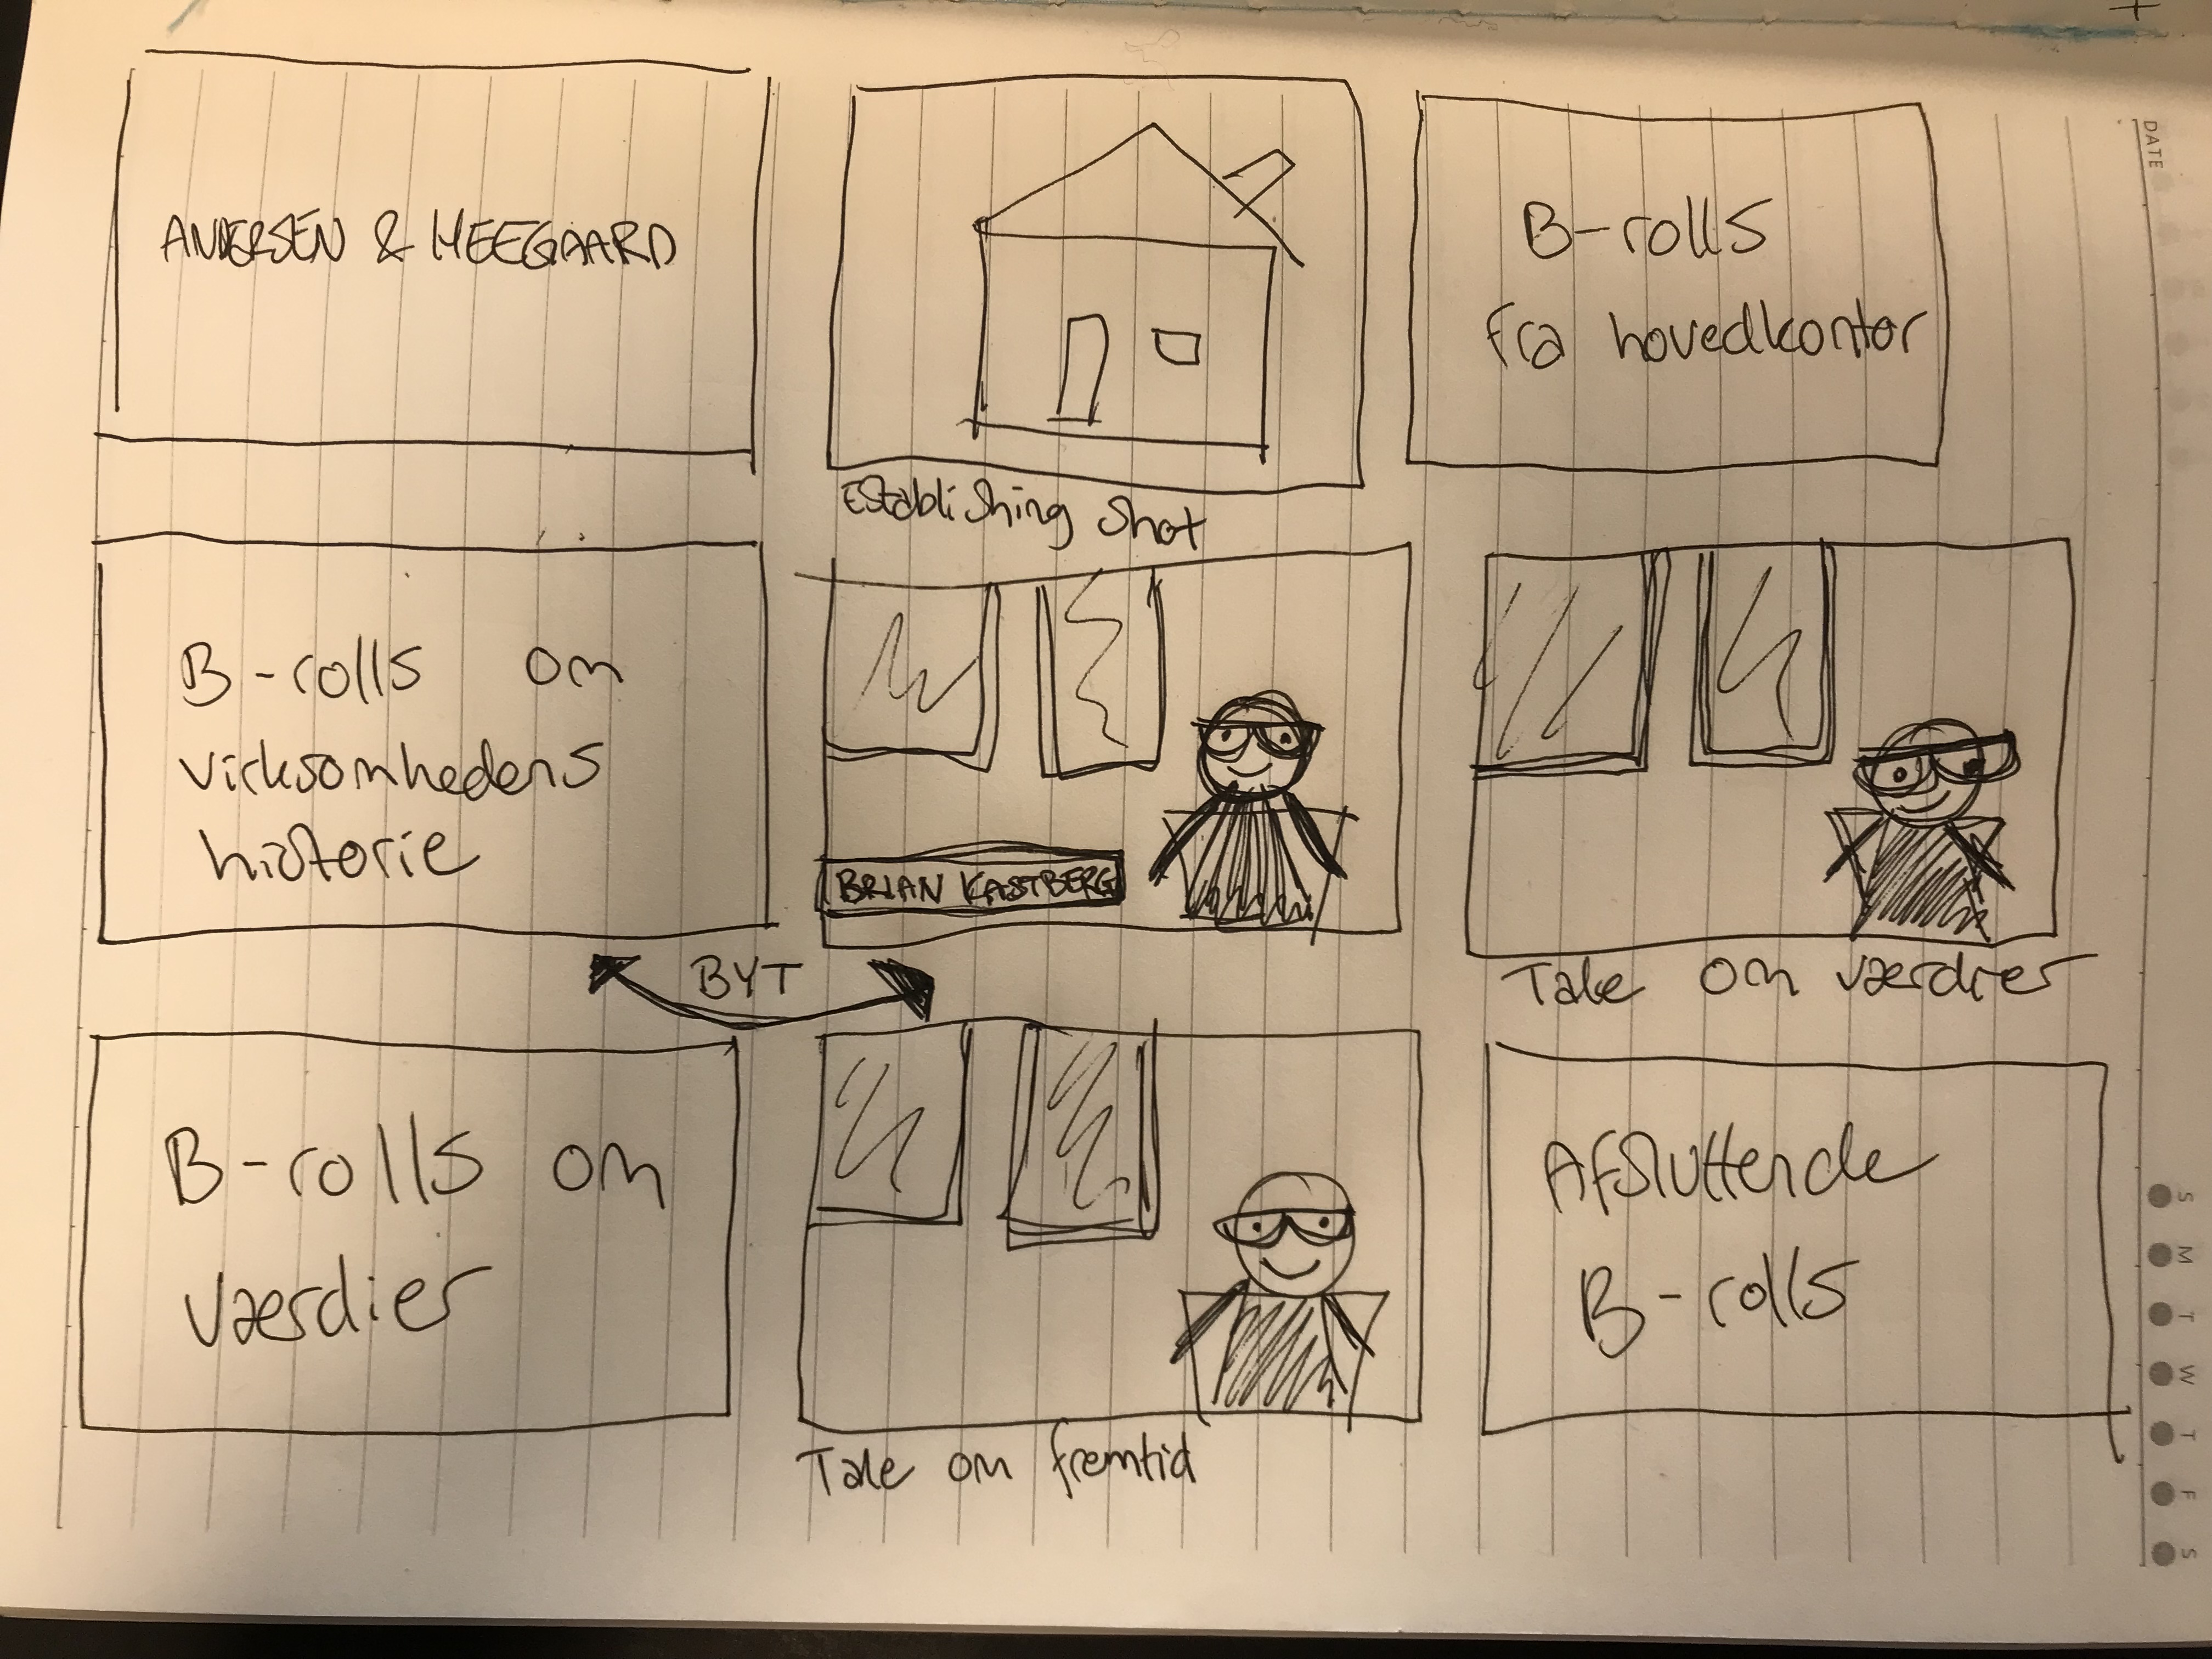 ANDERSEN & HEEGAARD
B-rolls
fra hovedkontor
Establishing shot
B-rolls om
virksomhedens
historie
BRIAN KASTBERG
Tale om værdier
BYT
B-rolls om
værdier
Tale om fremtid
Afsluttende
B-rolls
DATE
S
M
T
W
T
F
S